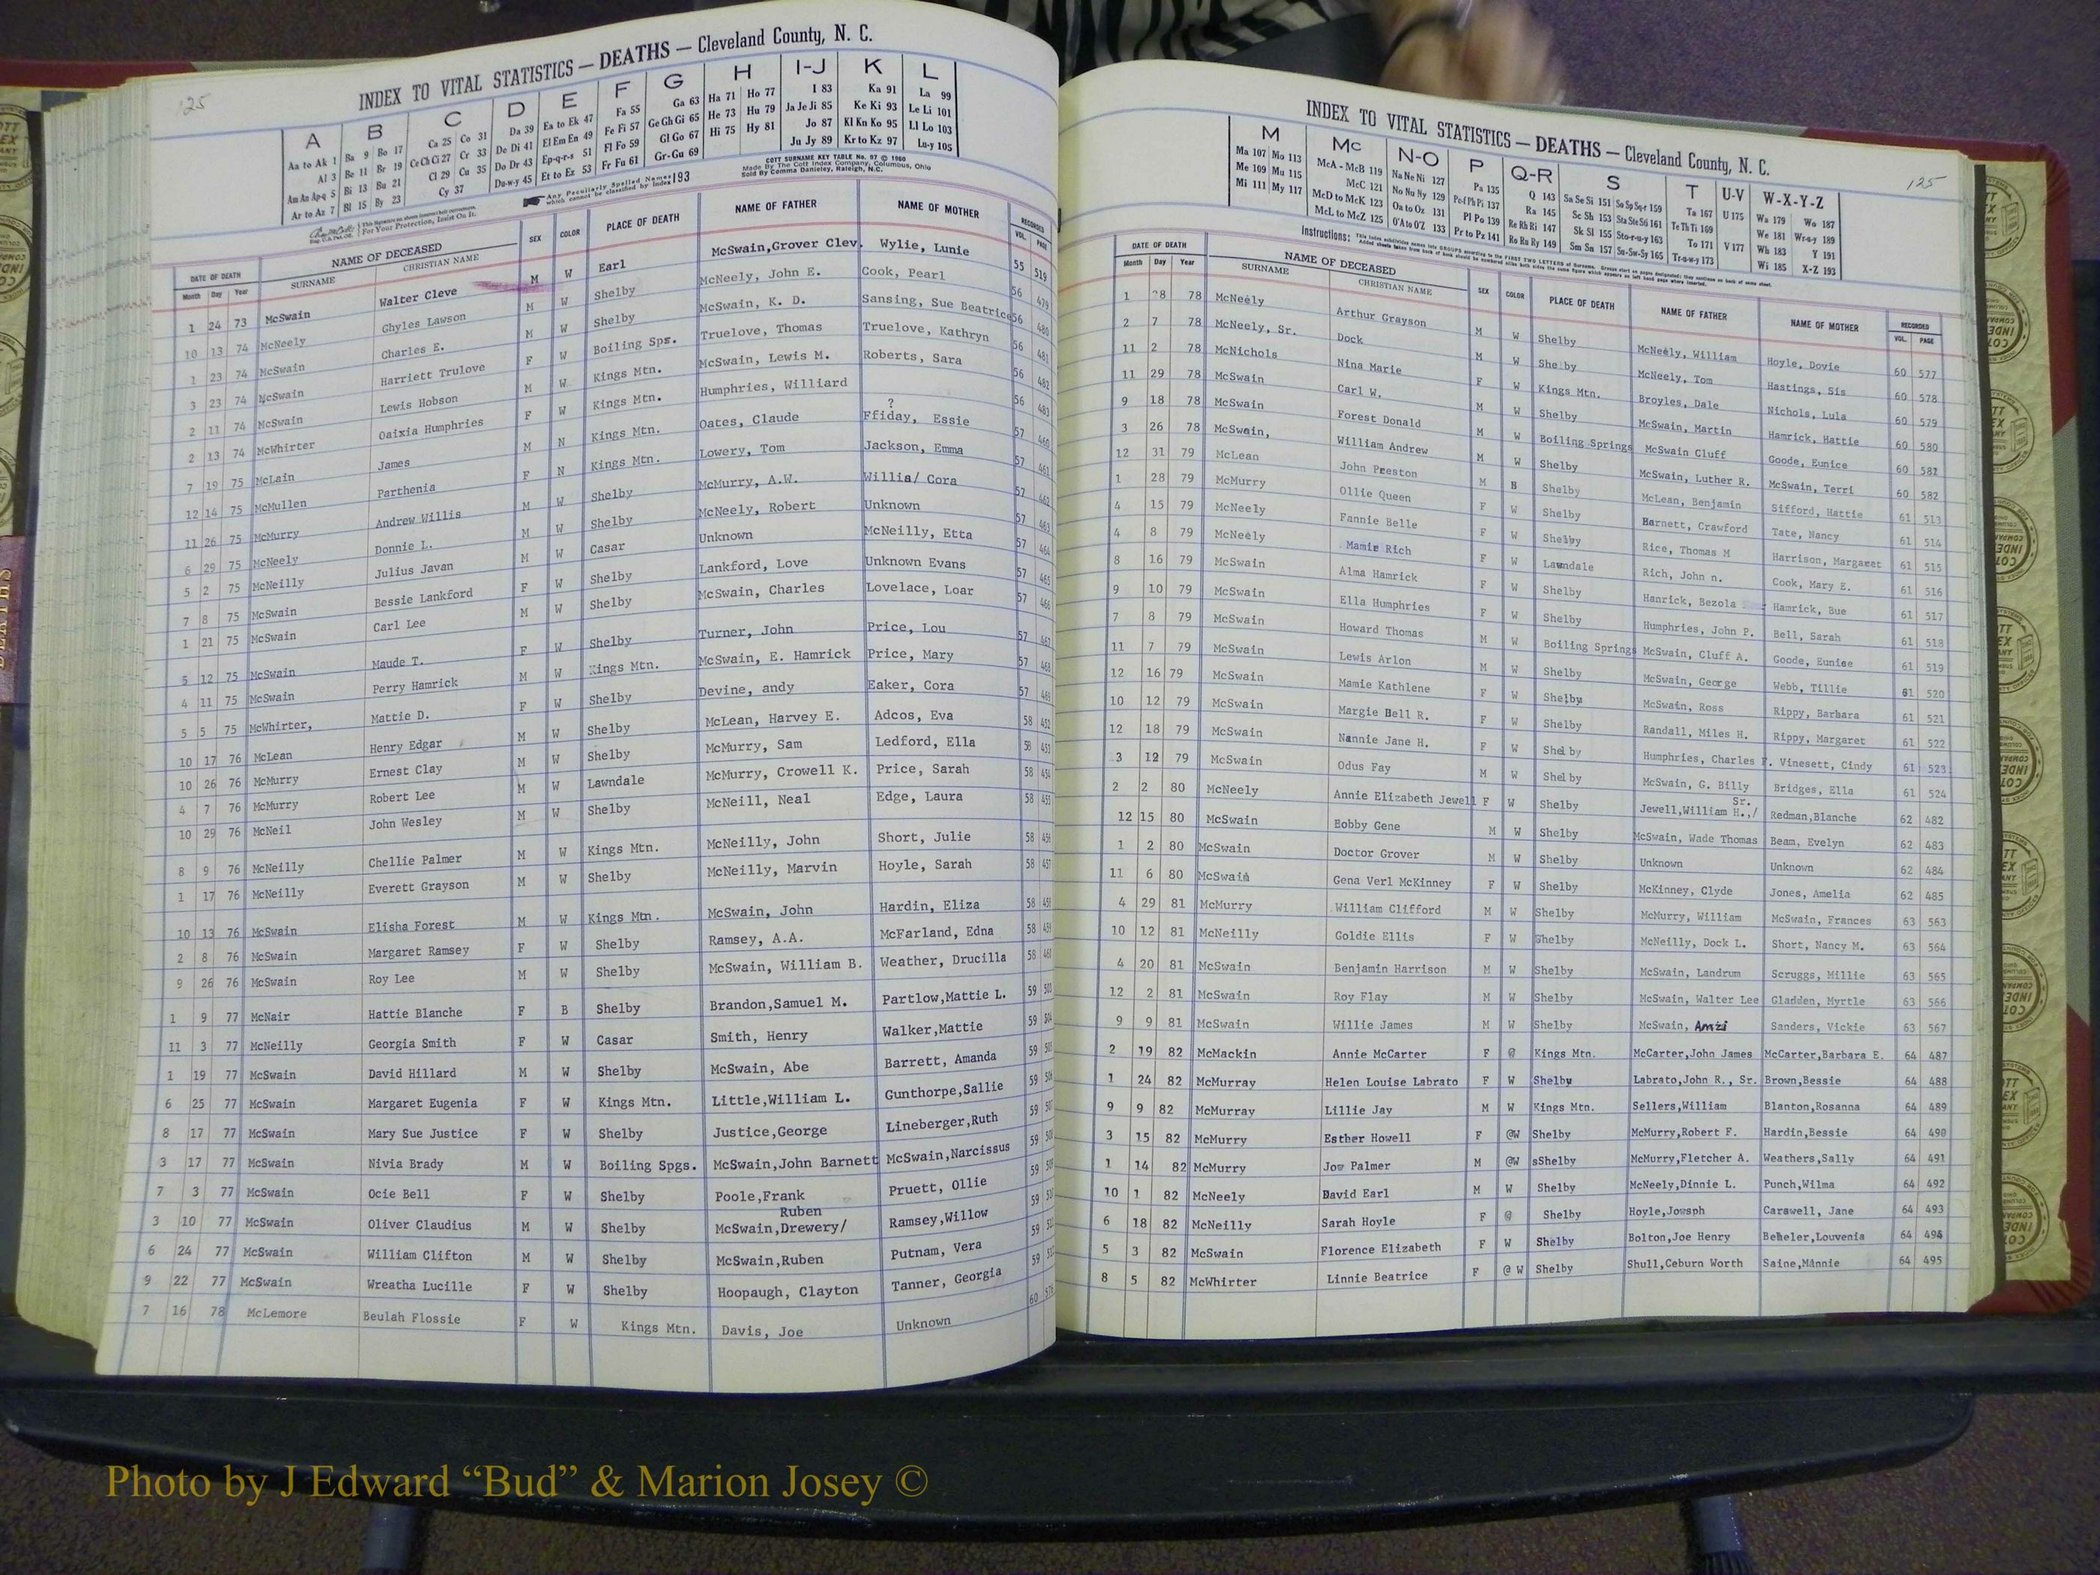 125
INDEX TO VITAL STATISTICS — DEATHS — Cleveland County, N. C.
A B C D E F G H I-J K L
Aa to Ak 1 Ba 9 Bo 17 Ca 25 Co 31 Da 39 Ea to Ek 47 Fa 55 Ga 63 Ha 71 Ho 77 I 83 Ka 91 La 99
Al 3 Be 11 Br 19 Ce Ch Ci 27 Cr 33 De Di 41 El Em En 49 Fe Fi 57 Ge Gh Gi 65 He 73 Hu 79 Ja Je Ji 85 Ke Ki 93 Le Li 101
Am An Ap-q 5 Bi 13 Bu 21 Cl 29 Cu 35 Do Dr 43 Ep-q-r-s 51 Fl Fo 59 Gl Go 67 Hi 75 Hy 81 Jo 87 Kl Kn Ko 95 Ll Lo 103
Ar to Az 7 Bl 15 By 23 Cy 37 Du-w-y 45 Et to Ez 53 Fr Fu 61 Gr-Gu 69 Ju Jy 89 Kr to Kz 97 Lu-y 105
Any Peculiarly Spelled Names which cannot be classified by Index 193
COTT SURNAME KEY TABLE No. 97 © 1960
Made By The Cott Index Company, Columbus, Ohio
Sold By Comma Danieley, Raleigh, N.C.
For Your Protection, Insist On It.
DATE OF DEATH NAME OF DECEASED SEX COLOR PLACE OF DEATH NAME OF FATHER NAME OF MOTHER RECORDED
Month Day Year SURNAME CHRISTIAN NAME VOL. PAGE
1 24 73 McSwain Walter Cleve M W Earl McSwain,Grover Clev. Wylie, Lunie 55 519
10 13 74 McNeely Ghyles Lawson M W Shelby McNeely, John E. Cook, Pearl 56 479
1 23 74 McSwain Charles E. M W Shelby McSwain, K. D. Sansing, Sue Beatrice 56 480
3 23 74 McSwain Harriett Trulove F W Boiling Spr. Truelove, Thomas Truelove, Kathryn 56 481
2 11 74 McSwain Lewis Hobson M W Kings Mtn. McSwain, Lewis M. Roberts, Sara 56 482
2 13 74 McWhirter Oaixia Humphries F W Kings Mtn. Humphries, Williard ? 56 483
7 19 75 McLain James M N Kings Mtn. Oates, Claude Ffiday, Essie 57 460
12 14 75 McMullen Parthenia F N Kings Mtn. Lowery, Tom Jackson, Emma 57 461
11 26 75 McMurry Andrew Willis M W Shelby McMurry, A.W. Willis/ Cora 57 462
6 29 75 McNeely Donnie L. M W Shelby McNeely, Robert Unknown 57 463
5 2 75 McNeilly Julius Javan M W Casar Unknown McNeilly, Etta 57 464
7 8 75 McSwain Bessie Lankford F W Shelby Lankford, Love Unknown Evans 57 465
1 21 75 McSwain Carl Lee M W Shelby McSwain, Charles Lovelace, Loar 57 466
5 12 75 McSwain Maude T. F W Shelby Turner, John Price, Lou 57 467
4 11 75 McSwain Perry Hamrick M W Kings Mtn. McSwain, E. Hamrick Price, Mary 57 468
5 5 75 McWhirter, Mattie D. F W Shelby Devine, andy Eaker, Cora 57 469
10 17 76 McLean Henry Edgar M W Shelby McLean, Harvey E. Adcos, Eva 58 452
10 26 76 McMurry Ernest Clay M W Shelby McMurry, Sam Ledford, Ella 58 453
4 7 76 McMurry Robert Lee M W Lawndale McMurry, Crowell K. Price, Sarah 58 454
10 29 76 McNeil John Wesley M W Shelby McNeill, Neal Edge, Laura 58 455
8 9 76 McNeilly Chellie Palmer M W Kings Mtn. McNeilly, John Short, Julie 58 456
1 17 76 McNeilly Everett Grayson M W Shelby McNeilly, Marvin Hoyle, Sarah 58 457
10 13 76 McSwain Elisha Forest M W Kings Mtn. McSwain, John Hardin, Eliza 58 458
2 8 76 McSwain Margaret Ramsey F W Shelby Ramsey, A.A. McFarland, Edna 58 459
9 26 76 McSwain Roy Lee M W Shelby McSwain, William B. Weather, Drucilla 58 460
1 9 77 McNair Hattie Blanche F B Shelby Brandon,Samuel M. Partlow,Mattie L. 59 503
11 3 77 McNeilly Georgia Smith F W Casar Smith, Henry Walker,Mattie 59 504
1 19 77 McSwain David Hillard M W Shelby McSwain, Abe Barrett, Amanda 59 505
6 25 77 McSwain Margaret Eugenia F W Kings Mtn. Little,William L. Gunthorpe,Sallie 59 506
8 17 77 McSwain Mary Sue Justice F W Shelby Justice,George Lineberger,Ruth 59 507
3 17 77 McSwain Nivia Brady M W Boiling Spgs. McSwain,John Barnett McSwain,Narcissus 59 508
7 3 77 McSwain Ocie Bell F W Shelby Poole,Frank Pruett, Ollie 59 509
Ruben
3 10 77 McSwain Oliver Claudius M W Shelby McSwain,Drewery/ Ramsey,Willow 59
6 24 77 McSwain William Clifton M W Shelby McSwain,Ruben Putnam, Vera 59
9 22 77 McSwain Wreatha Lucille F W Shelby Hoopaugh, Clayton Tanner, Georgia 59
7 16 78 McLemore Beulah Flossie F W Kings Mtn. Davis, Joe Unknown 60 576
INDEX TO VITAL STATISTICS — DEATHS — Cleveland County, N. C.
125
M Mc N-O P Q-R S T U-V W-X-Y-Z
Ma 107 Mo 113 McA - McB 119 Na Ne Ni 127 Pa 135 Q 143 Sa Se Si 151 So Sp Sq-r 159 Ta 167 U 175 Wa 179 Wo 187
Me 109 Mu 115 McC 121 No Nu Ny 129 Pe-f Ph Pi 137 Ra 145 Sc Sh 153 Sta Ste Sti 161 Te Th Ti 169 We 181 Wr-u-y 189
Mi 111 My 117 McD to McK 123 Oa to Oz 131 Pl Po 139 Re Rh Ri 147 Sk Sl 155 Sto-r-u-y 163 To 171 V 177 Wh 183 Y 191
McL to McZ 125 O'A to O'Z 133 Pr to Pz 141 Ro Ru Ry 149 Sm Sn 157 Su-Sw-Sy 165 Tr-u-w-y 173 Wi 185 X-Z 193
DATE OF DEATH NAME OF DECEASED SEX COLOR PLACE OF DEATH NAME OF FATHER NAME OF MOTHER RECORDED
Month Day Year SURNAME CHRISTIAN NAME VOL. PAGE
1 28 78 McNeely Arthur Grayson M W Shelby McNeely, William Hoyle, Dovie 60 577
2 7 78 McNeely, Sr. Dock M W Shelby McNeely, Tom Hastings, Sis 60 578
11 2 78 McNichols Nina Marie F W Kings Mtn. Broyles, Dale Nichols, Lula 60 579
11 29 78 McSwain Carl W. M W Shelby McSwain, Martin Hamrick, Hattie 60 580
9 18 78 McSwain Forest Donald M W Boiling Springs McSwain Cluff Goode, Eunice 60 581
3 26 78 McSwain, William Andrew M W Shelby McSwain, Luther R. McSwain, Terri 60 582
12 31 79 McLean John Preston M B Shelby McLean, Benjamin Sifford, Hattie 61 513
1 28 79 McMurry Ollie Queen F W Shelby Barnett, Crawford Tate, Nancy 61 514
4 15 79 McNeely Fannie Belle F W Shelby Rice, Thomas M Harrison, Margaret 61 515
4 8 79 McNeely Mamie Rich F W Lawndale Rich, John n. Cook, Mary E. 61 516
8 16 79 McSwain Alma Hamrick F W Shelby Hanrick, Bezola Hamrick, Bue 61 517
9 10 79 McSwain Ella Humphries F W Shelby Humphries, John P. Bell, Sarah 61 518
7 8 79 McSwain Howard Thomas M W Boiling Springs McSwain, Cluff A. Goode, Eunice 61 519
11 7 79 McSwain Lewis Arlon M W Shelby McSwain, George Webb, Tillie 61 520
12 16 79 McSwain Mamie Kathlene F W Shelby McSwain, Ross Rippy, Barbara 61 521
10 12 79 McSwain Margie Bell R. F W Shelby Randall, Miles H. Rippy, Margaret 61 522
12 18 79 McSwain Nannie Jane H. F W Shelby Humphries, Charles F. Vinesett, Cindy 61 523
3 12 79 McSwain Odus Fay M W Shelby McSwain, G. Billy Bridges, Ella 61 524
Sr.
2 2 80 McNeely Annie Elizabeth Jewell F W Shelby Jewell,William H.,/ Redman,Blanche 62 482
12 15 80 McSwain Bobby Gene M W Shelby McSwain, Wade Thomas Beam, Evelyn 62 483
1 2 80 McSwain Doctor Grover M W Shelby Unknown Unknown 62 484
11 6 80 McSwain Gena Verl McKinney F W Shelby McKinney, Clyde Jones, Amelia 62 485
4 29 81 McMurry William Clifford M W Shelby McMurry, William McSwain, Frances 63 563
10 12 81 McNeilly Goldie Ellis F W Shelby McNeilly, Dock L. Short, Nancy M. 63 564
4 20 81 McSwain Benjamin Harrison M W Shelby McSwain, Landrum Scruggs, Millie 63 565
12 2 81 McSwain Roy Flay M W Shelby McSwain, Walter Lee Gladden, Myrtle 63 566
9 9 81 McSwain Willie James M W Shelby McSwain, Amzi Sanders, Vickie 63 567
2 19 82 McMackin Annie McCarter F @ Kings Mtn. McCarter,John James McCarter,Barbara E. 64 487
1 24 82 McMurray Helen Louise Labrato F W Shelby Labrato,John R., Sr. Brown,Bessie 64 488
9 9 82 McMurray Lillie Jay M W Kings Mtn. Sellers,William Blanton,Rosanna 64 489
3 15 82 McMurry Esther Howell F @W Shelby McMurry,Robert F. Hardin,Bessie 64 490
1 14 82 McMurry Joe Palmer M @W sShelby McMurry,Fletcher A. Weathers,Sally 64 491
10 1 82 McNeely David Earl M W Shelby McNeely,Dinnie L. Punch,Wilma 64 492
6 18 82 McNeilly Sarah Hoyle F @ Shelby Hoyle,Jowsph Carawell, Jane 64 493
5 3 82 McSwain Florence Elizabeth F W Shelby Bolton,Joe Henry Beheler,Louvenia 64 494
8 5 82 McWhirter Linnie Beatrice F @ W Shelby Shull,Ceburn Worth Saine,Minnie 64 495
Photo by J Edward “Bud” & Marion Josey ©